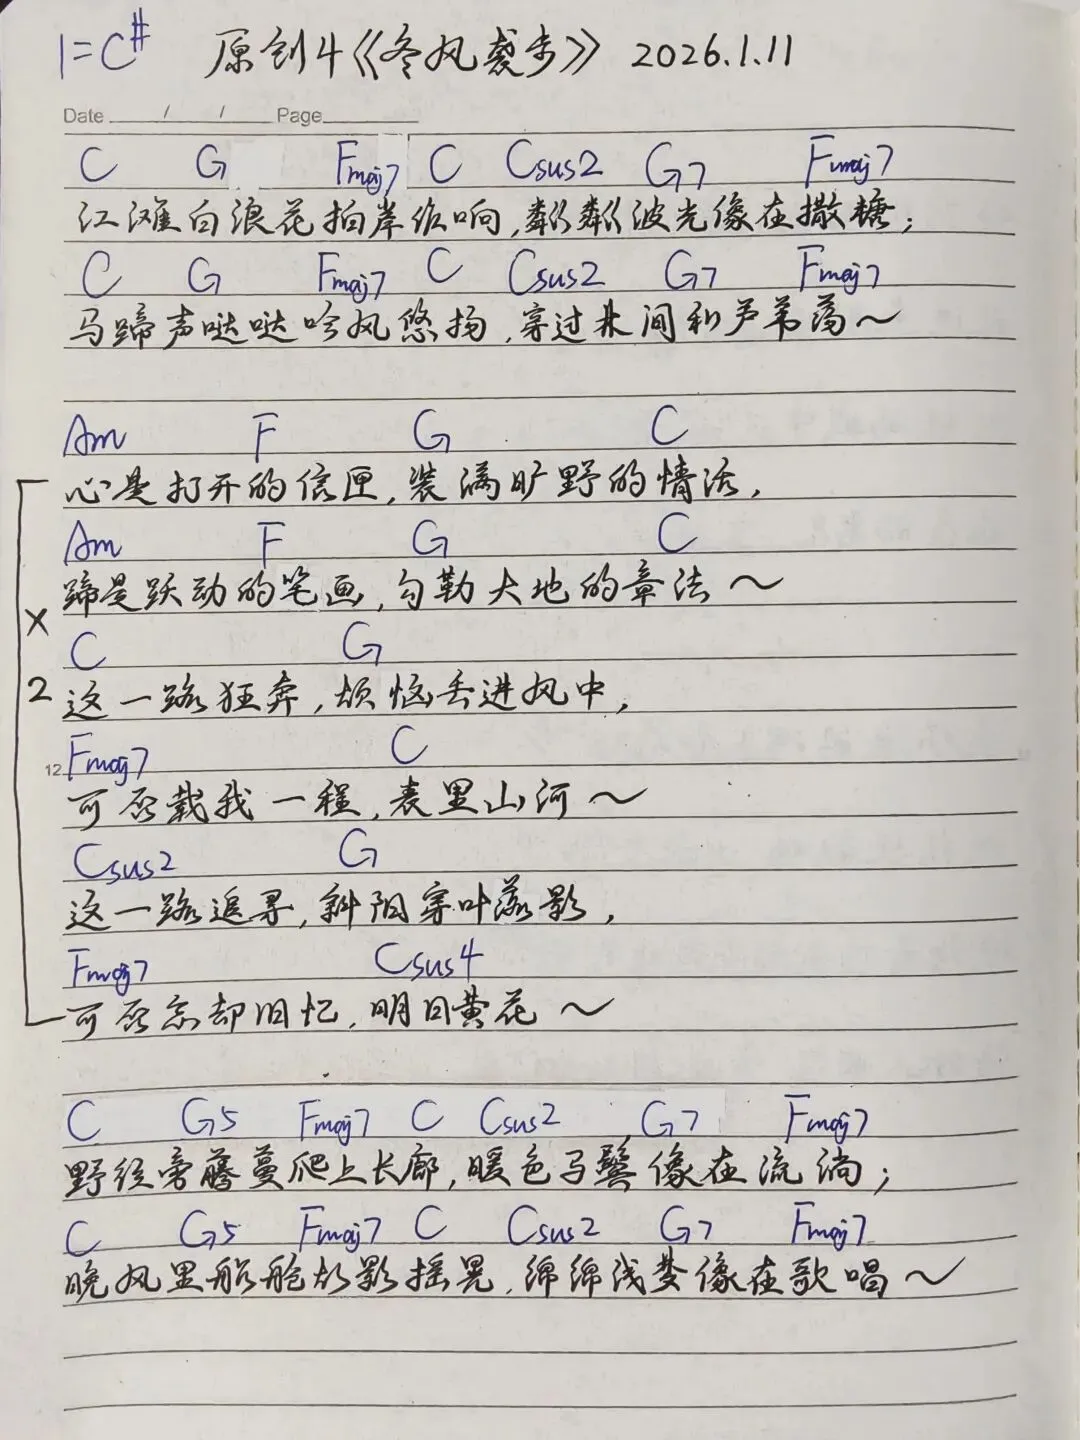 1=C# 原创4《冬风袭步》 2026.1.11
Date / / Page
C G Fmaj7 C Csus2 G7 Fmaj7
江滩白浪花拍岸作响,粼粼波光像在撒糖;
C G Fmaj7 C Csus2 G7 Fmaj7
马蹄声哒哒吟风悠扬,穿过林间和芦苇荡~
Am F G C
心是打开的信匣,装满旷野的情话,
Am F G C
蹄是跃动的笔画,勾勒大地的章法~
C G
这一路狂奔,烦恼丢进风中,
12 Fmaj7 C
可否载我一程,表里山河~
Csus2 G
这一路追寻,斜阳穿叶落影,
Fmaj7 Csus4
可否忘却旧忆,明日黄花~
×2
C G5 Fmaj7 C Csus2 G7 Fmaj7
野径旁藤蔓爬上长廊,暖色马鬃像在流淌;
C G5 Fmaj7 C Csus2 G7 Fmaj7
晚风里船舱灯影摇晃,绵绵浅梦像在歌唱~